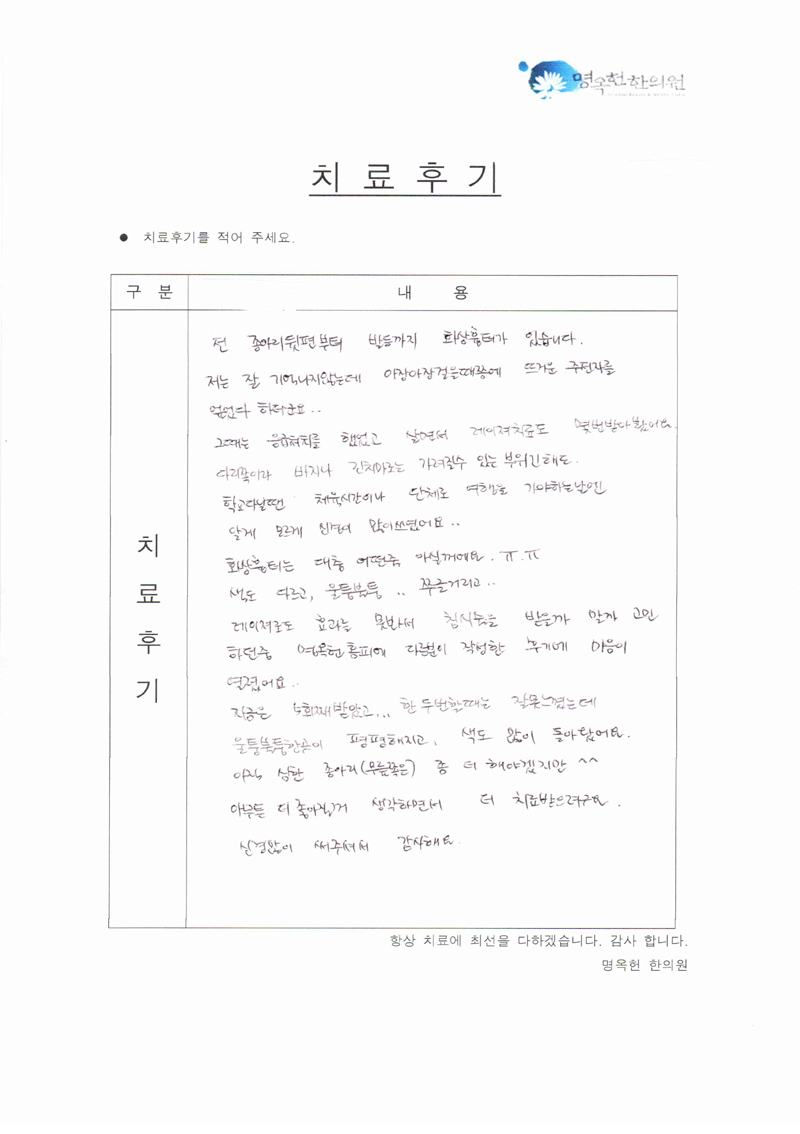 명옥헌한의원
치 료 후 기
● 치료후기를 적어 주세요.
구 분
내 용
치
료
후
기
전 종아리뒷편부터 발등까지 화상흉터가 있습니다.
저는 잘 기억나지않는데 아장아장걸을때쯤에 뜨거운 주전자를
엎었다 하더군요..
그때는 응급처치를 했었고 살면서 레이져치료도 몇번받아봤어요.
다리쪽이라 바지나 긴치마로는 가려질수 있는 부위긴해도.
학교다닐땐 체육시간이나 단체로 여행을 가야하는날엔
알게 모르게 신경이 많이쓰였어요..
화상흉터는 대충 어떤줄 아실꺼에요. ㅠ.ㅠ
색도 다르고, 울퉁불퉁 .. 쭈글거리고..
레이져로도 효과는 못봐서 침시술을 받을까 말까 고민
하던중 명옥헌홈피에 다른분이 작성한 후기에 마음이
열렸어요..
지금은 5회째받았고... 한두번할때는 잘못느꼈는데
울퉁불퉁한곳이 평평해지고, 색도 많이 돌아왔어요.
아직 심한 종아리(무릎쪽은) 좀 더 해야겠지만 ^^
아무튼 더좋아질거 생각하면서 더 치료받으려구요.
신경많이 써주셔서 감사해요.
항상 치료에 최선을 다하겠습니다. 감사 합니다.
명옥헌 한의원